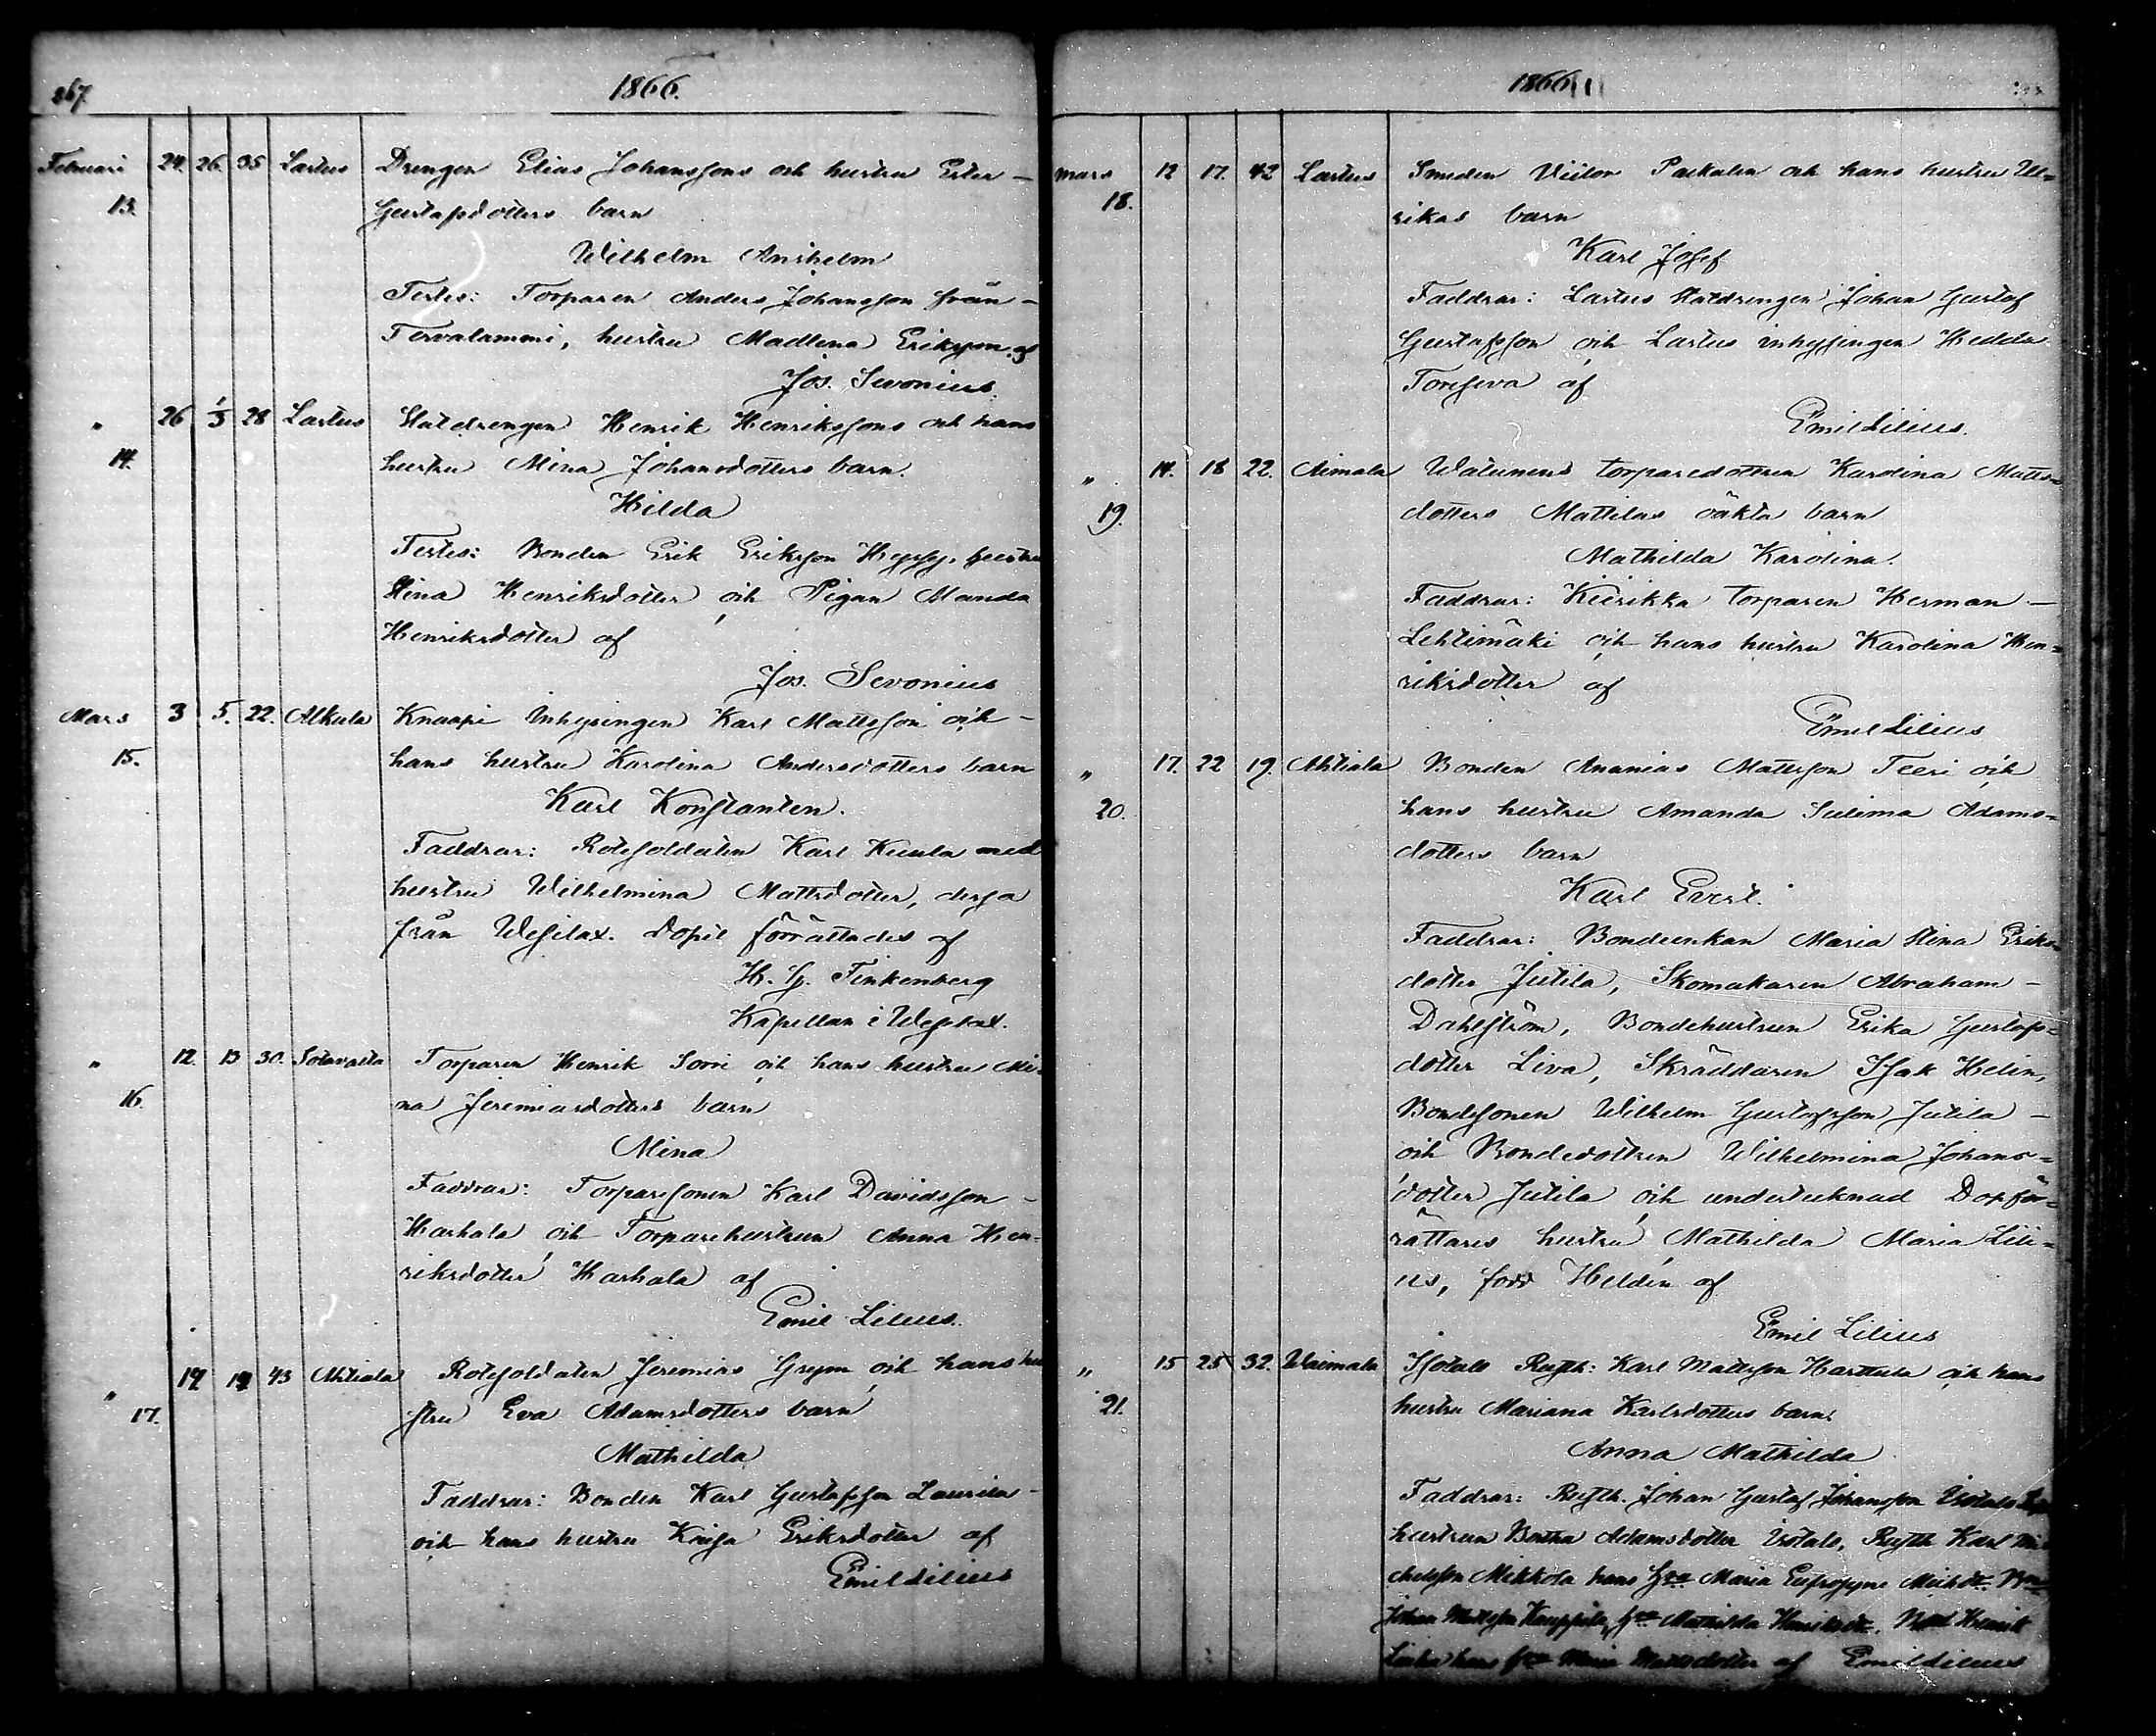 267.
1866.
Februari 24. 26. 35 Lartus Drengen Elias Johanssons och hustru Ester —
13. Gustafsdotters barn
Wilhelm Anshelm
Testes: Torparen Anders Johansson från —
Tervalammi, hustru Madlena Eriksson af
Jos. Sevonius.
" 26 1/3 28 Lartus Statdrengen Henrik Henrikssons och hans
14. hustru Mina Johansdotters barn.
Hilda
Testes: Bonden Erik Eriksson hustru
Stina Henriksdotter och Pigan Manda
Henriksdotter af
Jos. Sevonius
Mars 3 5. 22. Alkula Knaapi Inhysingen Karl Mattsson och —
15. hans hustru Karolina Andersdotters barn
Karl Konstantin.
Faddrar: Rotesoldaten Karl Kuula med
hustru Wilhelmina Mattsdotter, dessa
från Wesilax. Dopet förrättades af
H. G. Finkenberg
Kapellan i Wesilax.
" 12. 13 30. Sotavalta Torparen Henrik Sorri och hans hustru Mi-
16. na Jeremiasdotters barn
Mina
Faddrar: Torparesonen Karl Davidsson —
Harhala och Torparehustrun Anna Hen=
riksdotter Harhala af
Emil Lilius.
" 17 19 43 Ahtiala Rotesoldaten Jeremias Grym och hans hu
17. stru Eva Adamsdotters barn
Mathilda
Faddrar: Bonden Karl Gustafsson Laurila —
och hans hustru Kaisa Eriksdotter af
Emil Lilius
1866
Mars 12 17. 42 Lartus Smeden Viktor Packalen och hans hustru Ul=
18. rikas barn
Karl Josef
Faddrar: Lartus Statdrengen Johan Gustaf
Gustafsson och Lartus inhysingen Hedda
af
Emil Lilius.
" 14. 18 22. Aimala torparedottren Karolina Matts=
19. dotters Mattilas oäkta barn
Mathilda Karolina.
Faddrar: Kiirikka torparen Herman —
Lehtimäki och hans hustru Karolina Hen=
riksdotter af
Emil Lilius
" 17. 22 19. Ahtiala Bonden Ananias Mattsson Teeri och
20. hans hustru Amanda Sulima Adams=
dotters barn
Karl Evert.
Faddrar: Bondeenkan Maria Stina Eriks=
dotter Jutila, Skomakaren Abraham —
Dahlström, Bondehustrun Erika Gustafs=
dotter Liva, Skräddaren Isak Helin,
Bondesonen Wilhelm Gustafsson Jutila —
och Bondedottren Wilhelmina Johans=
dotter Jutila och undertecknad Dopför=
rättares hustru Mathilda Maria Lili=
us, född Heldén af
Emil Lilius
" 15 25 32. Waimala Isotalo Rusth: Karl Mattsson Harttula och hans
21. hustru Mariana Karlsdotters barn.
Anna Mathilda
Faddrar: Rusth. Johan Gustaf Johansson Isotalo
hustrun Adamsdotter Isotalo, Rusth Karl Mi
chelsson Mikkola hans hru Maria
Johan Mattsson Kauppila, hru Mathilda Henriksdtr.
hans hru Maria Mattsdotter af Emil Lilius